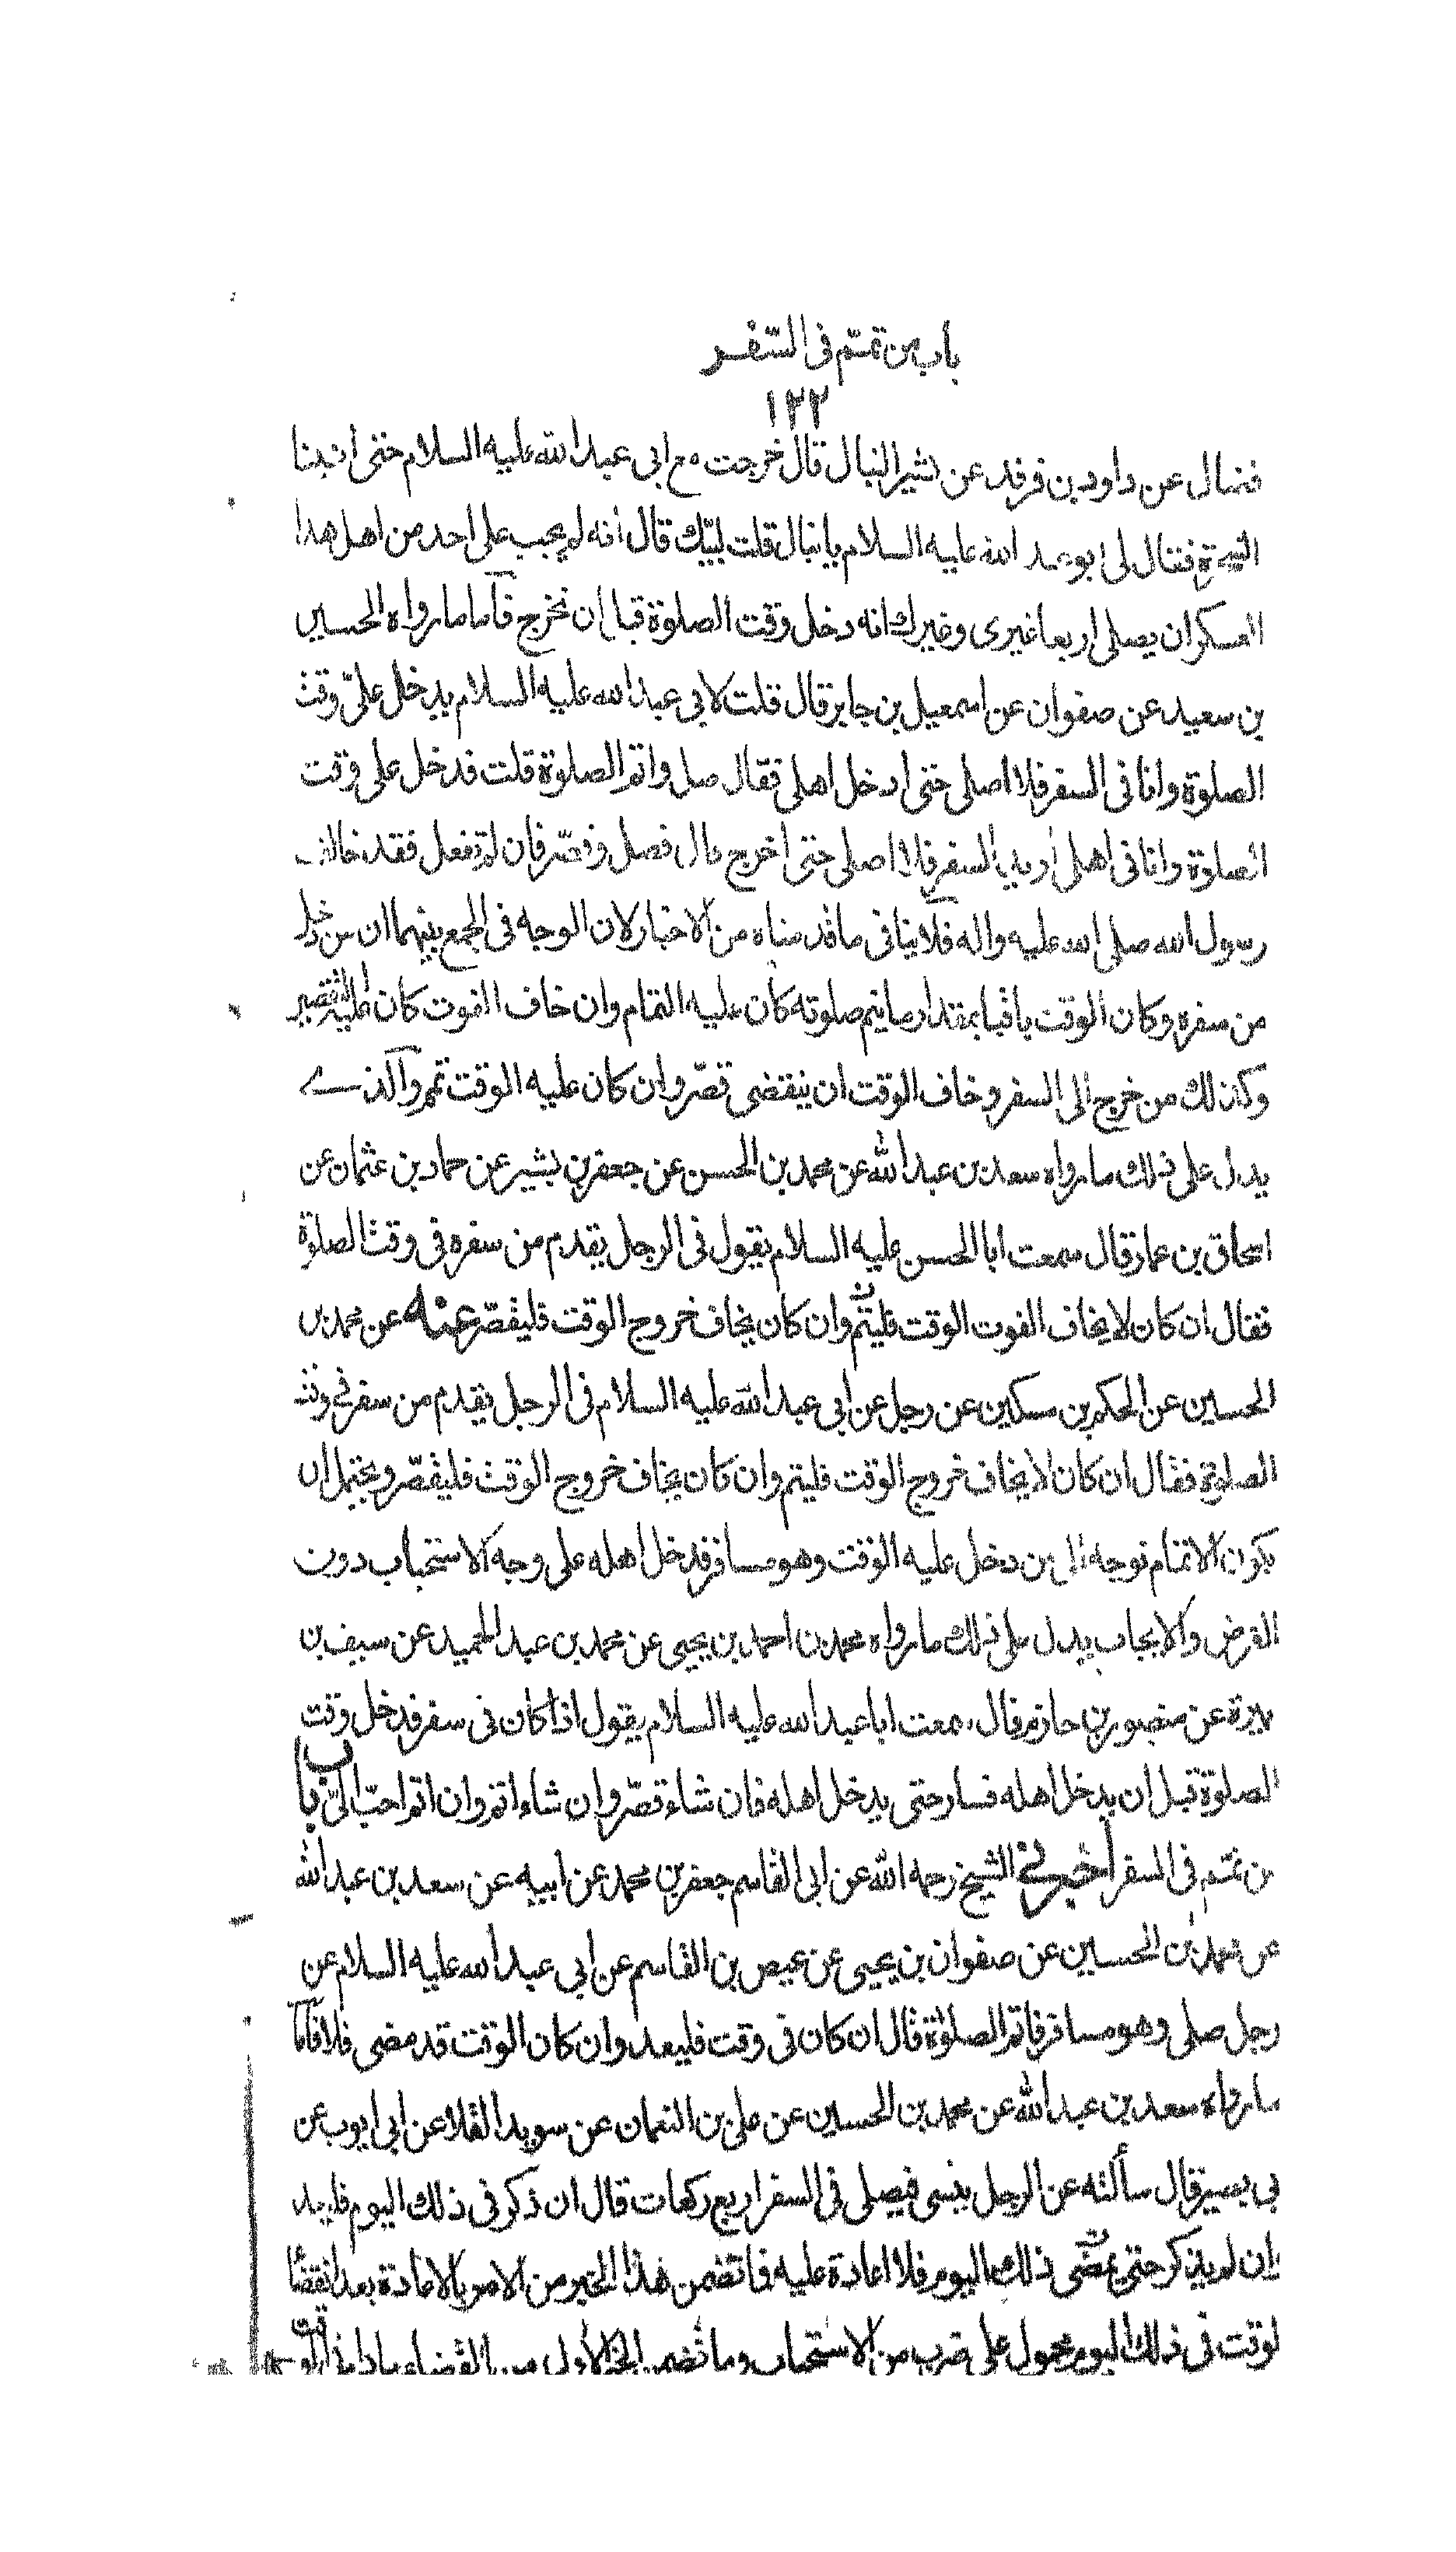 باب من تمّم فى السّفر
١٢٢
فضال عن داود بن فرقد عن بشير النبال قال خرجت مع ابى عبد الله عليه السلام حتى اتينا
الشجرة فقال لى ابو عبد الله عليه السلام يا نبال قلت لبيّك قال انه لم يجب على احد من اهل هذا
العسكر ان يصلى اربعا غيرى وغيرك انه دخل وقت الصلوة قبل ان نخرج فاما ما رواه الحسين
بن سعيد عن صفوان عن اسمعيل بن جابر قال قلت لابى عبد الله عليه السلام يدخل علىّ وقت
الصلوة وانا فى السفر فلا اصلى حتى ادخل اهلى فقال صل واتم الصلوة قلت فدخل على وقت
الصلوة وانا فى اهلى اريد السفر فلا اصلى حتى اخرج قال فصل وقصّر فان لم تفعل فقد خالفت
رسول الله صلى الله عليه واله فلا ينافى ما قدمناه من الاخبار لان الوجه فى الجمع بينهما ان من دخل
من سفره وكان الوقت باقيا بمقدار ما يتم صلوته كان عليه التمام وان خاف الفوت كان عليه التقصير
وكذلك من خرج الى السفر وخاف الوقت ان ينقضى قصّر وان كان عليه الوقت تمم والذى
يدل على ذلك ما رواه سعد بن عبد الله عن محمد بن الحسن عن جعفر بن بشير عن حماد بن عثمان عن
اسحاق بن عمار قال سمعت ابا الحسن عليه السلام يقول فى الرجل يقدم من سفره فى وقت الصلوة
فقال ان كان لا يخاف الفوت الوقت فليتم وان كان يخاف خروج الوقت فليقصّر عنه عن محمد بن
الحسين عن الحكم بن مسكين عن رجل عن ابى عبد الله عليه السلام فى الرجل يقدم من سفر فى وقت
الصلوة فقال ان كان لا يخاف خروج الوقت فليتم وان كان يخاف خروج الوقت فليقصّر ويحتمل ان
يكون الاتمام توجه الى من دخل عليه الوقت وهو مسافر فدخل اهله على وجه الاستحباب دون
الفرض والايجاب يدل على ذلك ما رواه محمد بن احمد بن يحيى عن محمد بن عبد الحميد عن سيف بن
عميرة عن منصور بن حازم قال سمعت ابا عبد الله عليه السلام يقول اذا كان فى سفر فدخل وقت
الصلوة قبل ان يدخل اهله فسار حتى يدخل اهله فان شاء قصّر وان شاء اتم وان اتم احبّ الىّ باب
من تمّم فى السفر أخبرنى الشيخ رحمه الله عن ابى القاسم جعفر بن محمد عن ابيه عن سعد بن عبد الله
عن محمد بن الحسين عن صفوان بن يحيى عن عيص بن القاسم عن ابى عبد الله عليه السلام عن
رجل صلى وهو مسافر فاتم الصلوة قال ان كان فى وقت فليعد وان كان الوقت قد مضى فلا فاما
ما رواه سعد بن عبد الله عن محمد بن الحسين عن على بن النعمان عن سويد القلا عن ابى ايوب عن
ابى بصير قال سألته عن الرجل ينسى فيصلى فى السفر اربع ركعات قال ان ذكر فى ذلك اليوم فليعد
وان لم يذكر حتى يمضى ذلك اليوم فلا اعادة عليه فما تضمن هذا الخبر من الامر بالاعادة بعد انقضاء
الوقت فى ذلك اليوم محمول على ضرب من الاستحباب وما تضمن الخبر الاول من القضاء ما دام الوقت